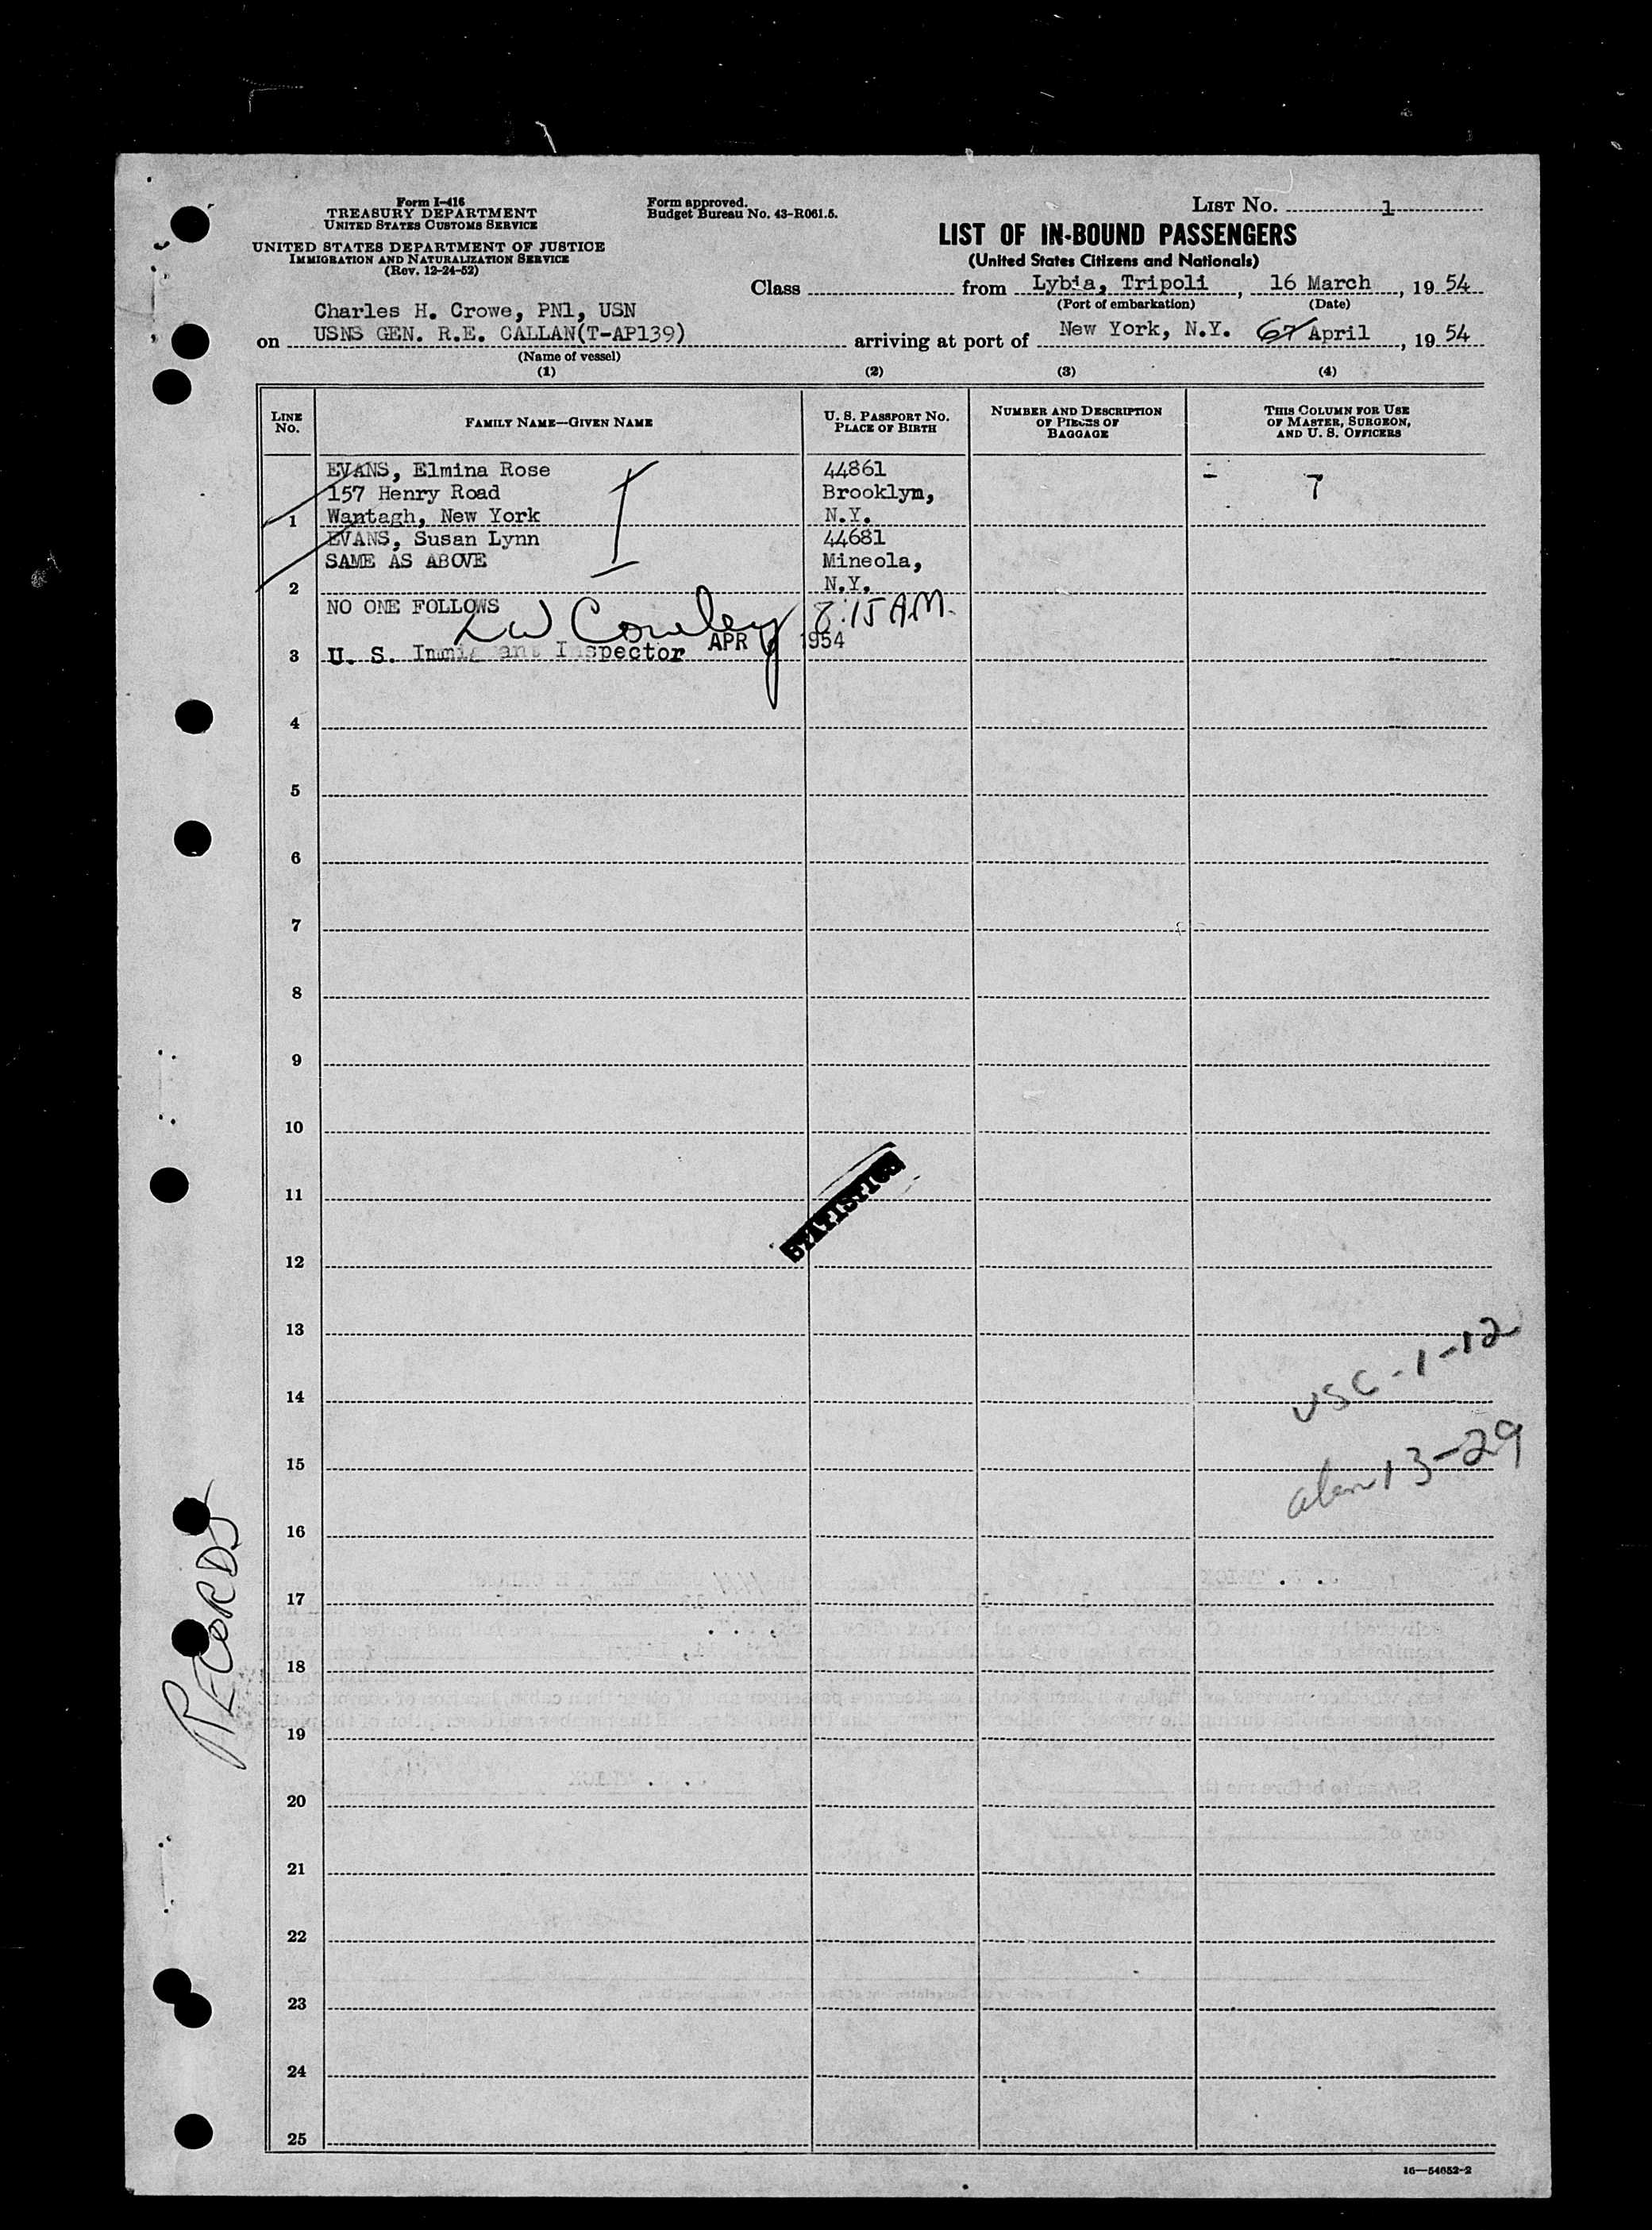 Form I-416
TREASURY DEPARTMENT
UNITED STATES CUSTOMS SERVICE
UNITED STATES DEPARTMENT OF JUSTICE
IMMIGRATION AND NATURALIZATION SERVICE
(Rev. 12-24-52)
Form approved.
Budget Bureau No. 43-R061.5.
LIST NO. 1
LIST OF IN-BOUND PASSENGERS
(United States Citizens and Nationals)
Class from Lybia, Tripoli, 16 March, 19 54
(Port of embarkation) (Date)
Charles H. Crowe, PN1, USN
on USNS GEN. R.E. CALLAN(T-AP139) arriving at port of New York, N.Y. April, 19 54
(Name of vessel)
(1) (2) (3) (4)
LINE NO. FAMILY NAME—GIVEN NAME U. S. PASSPORT NO. PLACE OF BIRTH NUMBER AND DESCRIPTION OF PIECES OF BAGGAGE THIS COLUMN FOR USE OF MASTER, SURGEON, AND U. S. OFFICERS
EVANS, Elmina Rose 44861 - 7
157 Henry Road Brooklyn,
1 Wantagh, New York N.Y.
EVANS, Susan Lynn 44681
SAME AS ABOVE Mineola,
2 N.Y.
NO ONE FOLLOWS 8:15 A.M.
LW Cowley APR 1954
3 U. S. Immigrant Inspector
4
5
6
7
8
9
10
11
STATISTICS
12
13
USC-1-12
14
15
alien 13-29
16
17
RECORDS
18
19
20
21
22
23
24
25
16—54652-2